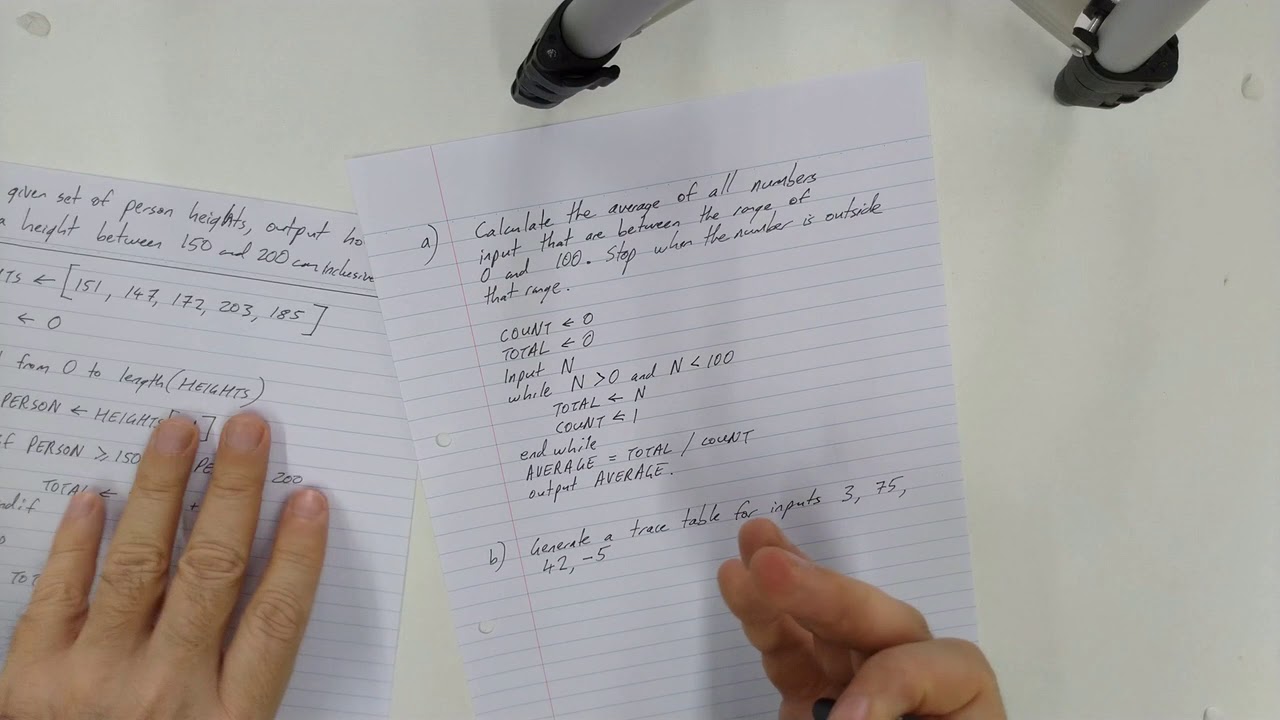 given set of person heights, output ho
a height between 150 and 200 cm inclusive
TS ← [151, 147, 172, 203, 185]
← 0
from 0 to length(HEIGHTS)
PERSON ← HEIGHTS[ ]
if PERSON ≥ 150 PE 200
TOTAL ← +
ndif
TOT
a) Calculate the average of all numbers
input that are between the range of
0 and 100. Stop when the number is outside
that range.
COUNT ← 0
TOTAL ← 0
Input N
while N >0 and N < 100
TOTAL ← N
COUNT ← 1
end while
AVERAGE = TOTAL / COUNT
output AVERAGE.
b) Generate a trace table for inputs 3, 75,
42, -5